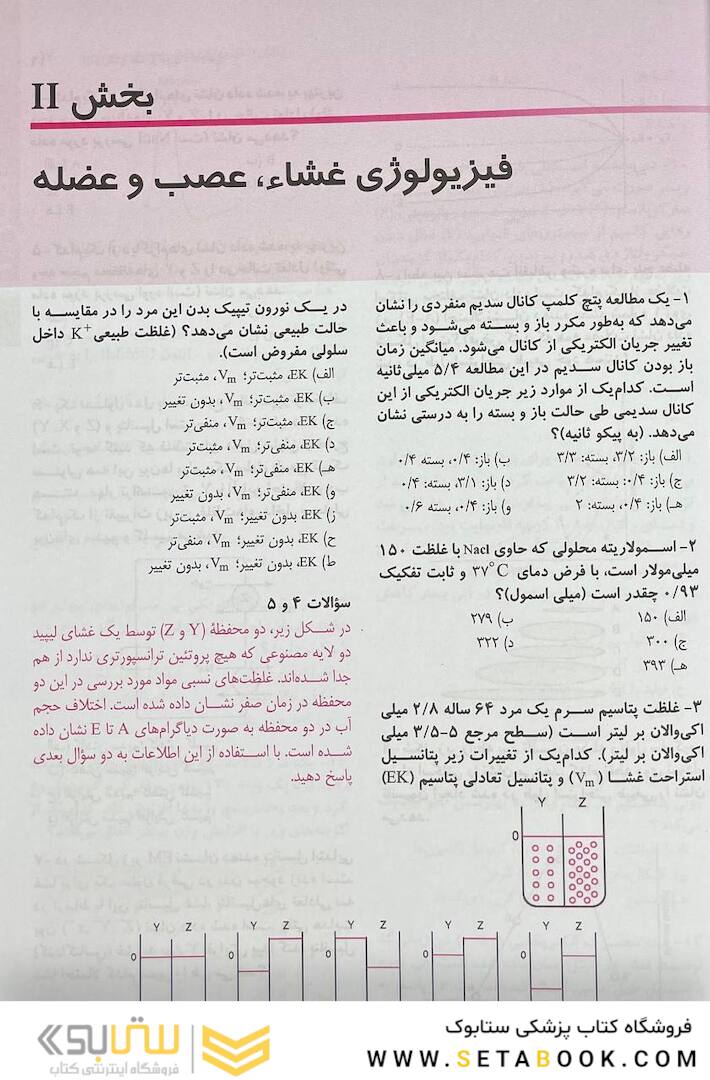 بخش II
فیزیولوژی غشاء، عصب و عضله
۱- یک مطالعه پتچ کلمپ کانال سدیم منفردی را نشان
می‌دهد که به‌طور مکرر باز و بسته می‌شود و باعث
تغییر جریان الکتریکی از کانال می‌شود. میانگین زمان
باز بودن کانال سدیم در این مطالعه ۵/۴ میلی‌ثانیه
است. کدام‌یک از موارد زیر جریان الکتریکی از این
کانال سدیمی طی حالت باز و بسته را به درستی نشان
می‌دهد. (به پیکو ثانیه)؟
الف) باز: ۳/۲، بسته: ۳/۳ ب) باز: ۰/۴، بسته ۰/۴
ج) باز: ۰/۴: بسته: ۳/۲ د) باز: ۳/۱، بسته: ۰/۴
هـ) باز: ۰/۴، بسته: ۲ و) باز: ۰/۴، بسته ۰/۶
۲- اسمولاریته محلولی که حاوی Nacl با غلظت ۱۵۰
میلی‌مولار است، با فرض دمای ۳۷°C و ثابت تفکیک
۰/۹۳ چقدر است (میلی اسمول)؟
الف) ۱۵۰ ب) ۲۷۹
ج) ۳۰۰ د) ۳۲۲
هـ) ۳۹۳
۳- غلظت پتاسیم سرم یک مرد ۶۴ ساله ۲/۸ میلی
اکی‌والان بر لیتر است (سطح مرجع ۵-۳/۵ میلی
اکی‌والان بر لیتر). کدام‌یک از تغییرات زیر پتانسیل
استراحت غشا (Vm) و پتانسیل تعادلی پتاسیم (EK)
در یک نورون تیپیک بدن این مرد را در مقایسه با
حالت طبیعی نشان می‌دهد؟ (غلظت طبیعی K+ داخل
سلولی مفروض است).
الف) EK، مثبت‌تر؛ Vm، مثبت‌تر
ب) EK، مثبت‌تر؛ Vm، بدون تغییر
ج) EK، مثبت‌تر؛ Vm، منفی‌تر
د) EK، منفی‌تر؛ Vm، مثبت‌تر
هـ) EK، منفی‌تر؛ Vm، مثبت‌تر
و) EK، منفی‌تر؛ Vm، بدون تغییر
ز) EK، بدون تغییر؛ Vm، مثبت‌تر
ح) EK، بدون تغییر؛ Vm، منفی‌تر
ط) EK، بدون تغییر؛ Vm، بدون تغییر
سؤالات ۴ و ۵
در شکل زیر، دو محفظهٔ (Y و Z) توسط یک غشای لیپید
دو لایه مصنوعی که هیچ پروتئین ترانسپورتری ندارد از هم
جدا شده‌اند. غلظت‌های نسبی مواد مورد بررسی در این دو
محفظه در زمان صفر نشان داده شده است. اختلاف حجم
آب در دو محفظه به صورت دیاگرام‌های A تا E نشان داده
شده است. با استفاده از این اطلاعات به دو سؤال بعدی
پاسخ دهید.
Y Z
0
Y Z Y Z Y Z Y Z Y Z
0 0 0 0 0
فروشگاه کتاب پزشکی ستابوک
WWW.SETABOOK.COM
ستابوک
فروشگاه اینترنتی کتاب